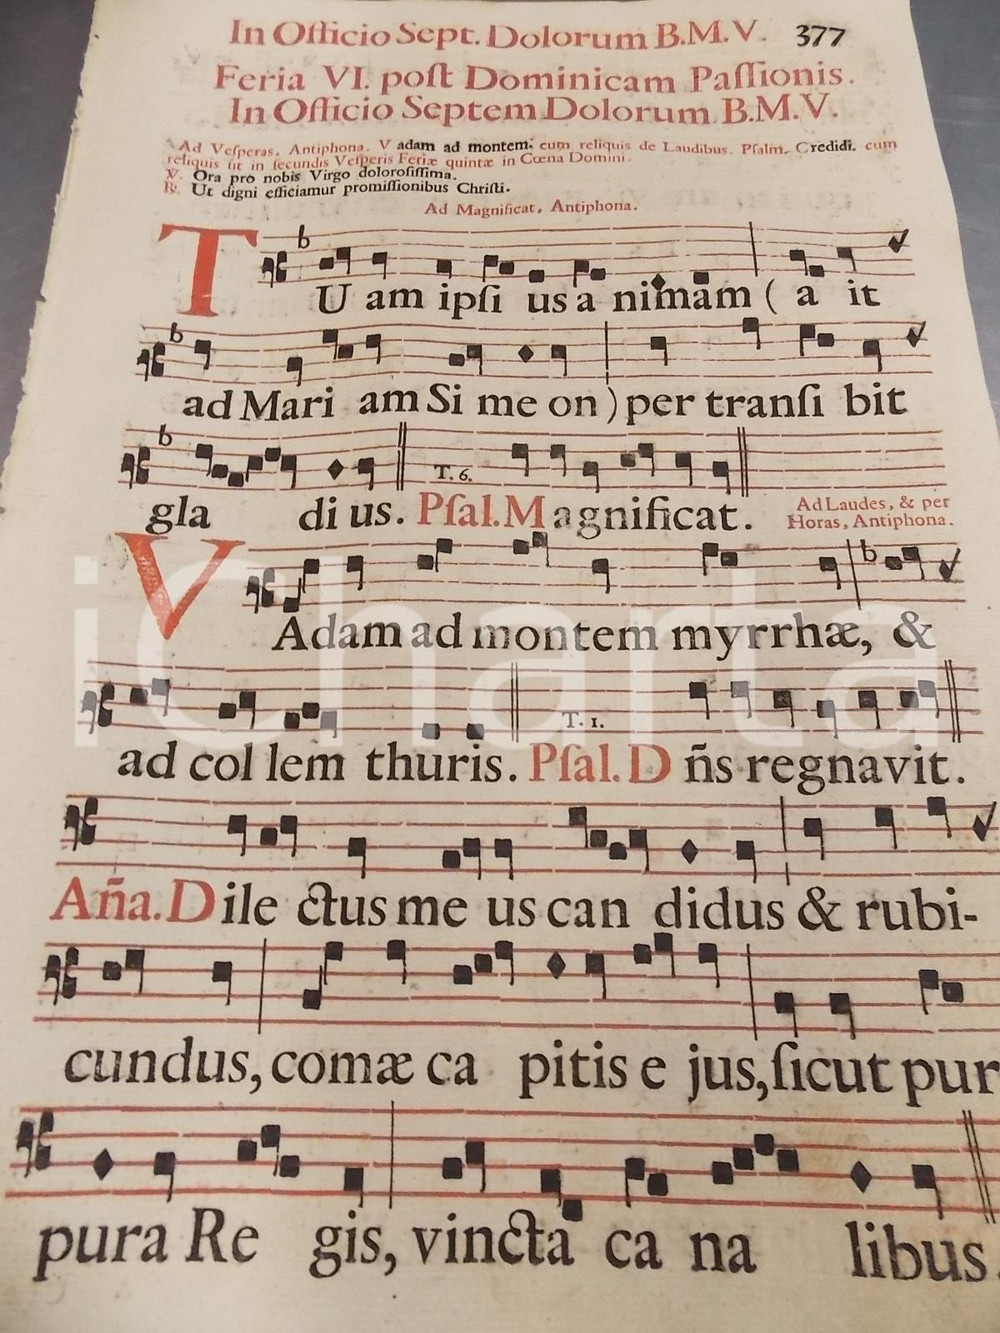 In Officio Sept. Dolorum B.M.V. 377
Feria VI. poſt Dominicam Paſſionis.
In Officio Septem Dolorum B.M.V.
Ad Veſperas, Antiphona. V adam ad montem; cum reliquis de Laudibus. Pſalm. Credidi. cum
reliquis ut in ſecundis Veſperis Feriæ quintæ in Cœna Domini.
V. Ora pro nobis Virgo doloroſiſſima.
R. Ut digni efficiamur promiſſionibus Chriſti.
Ad Magnificat, Antiphona.
b
TU am ipſi us a nimam ( a it
b
ad Mari am Si me on ) per tranſi bit
b
T. 6.
gla di us. Pſal. M agnificat. Ad Laudes, & per
Horas, Antiphona.
b
VAdam ad montem myrrhæ, &
T. 1.
ad col lem thuris. Pſal. D ñs regnavit.
Aña. Dile ctus me us can didus & rubi-
cundus, comæ ca pitis e jus, ſicut pur
pura Re gis, vincta ca na libus.
iCharta